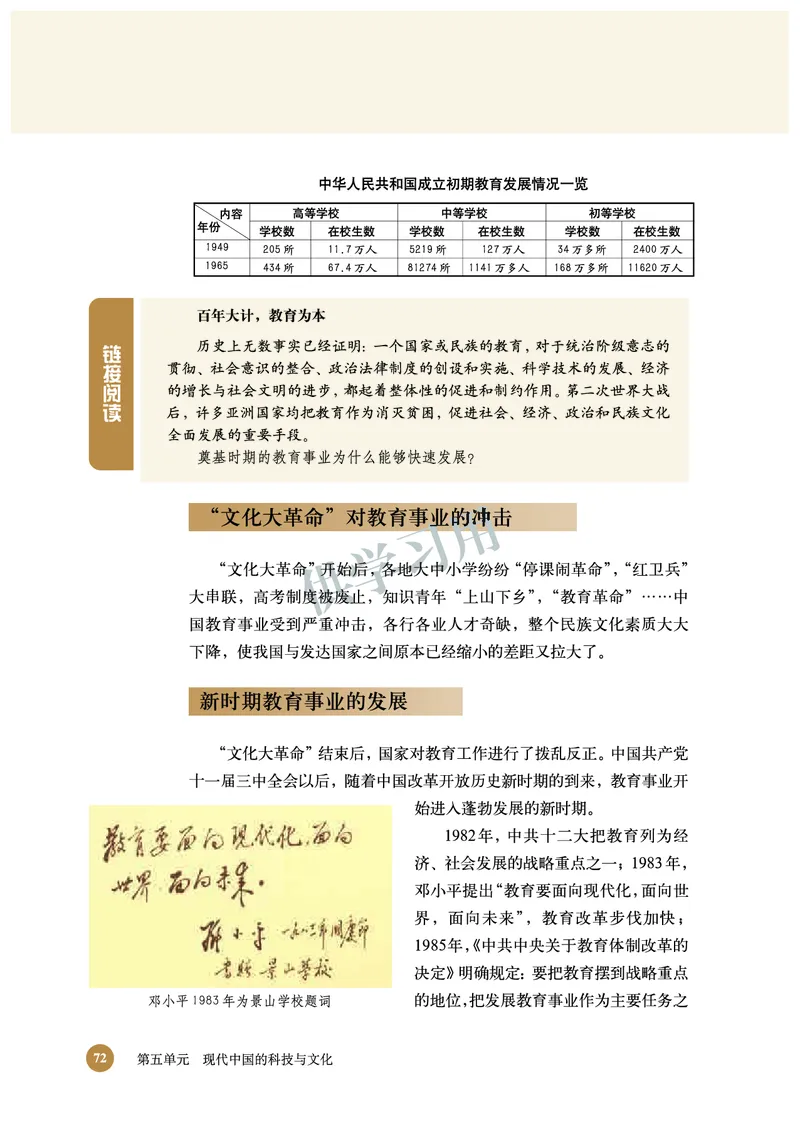 中华人民共和国成立初期教育发展情况一览
内容 高等学校 中等学校 初等学校
年份 学校数 在校生数 学校数 在校生数 学校数 在校生数
1949 205所 11.7万人 5219所 127万人 34万多所 2400万人
1965 434所 67.4万人 81274所 1141万多人 168万多所 11620万人
链接阅读
百年大计，教育为本
历史上无数事实已经证明：一个国家或民族的教育，对于统治阶级意志的
贯彻、社会意识的整合、政治法律制度的创设和实施、科学技术的发展、经济
的增长与社会文明的进步，都起着整体性的促进和制约作用。第二次世界大战
后，许多亚洲国家均把教育作为消灭贫困，促进社会、经济、政治和民族文化
全面发展的重要手段。
奠基时期的教育事业为什么能够快速发展？
“文化大革命”对教育事业的冲击
供学习用
“文化大革命”开始后，各地大中小学纷纷“停课闹革命”，“红卫兵”
大串联，高考制度被废止，知识青年“上山下乡”，“教育革命”……中
国教育事业受到严重冲击，各行各业人才奇缺，整个民族文化素质大大
下降，使我国与发达国家之间原本已经缩小的差距又拉大了。
新时期教育事业的发展
“文化大革命”结束后，国家对教育工作进行了拨乱反正。中国共产党
十一届三中全会以后，随着中国改革开放历史新时期的到来，教育事业开
始进入蓬勃发展的新时期。
1982年，中共十二大把教育列为经
济、社会发展的战略重点之一；1983年，
邓小平提出“教育要面向现代化，面向世
界，面向未来”，教育改革步伐加快；
1985年，《中共中央关于教育体制改革的
决定》明确规定：要把教育摆到战略重点
的地位，把发展教育事业作为主要任务之
教育要面向现代化，面向
世界，面向未来。
邓小平 一九八三年国庆节
书赠景山学校
邓小平1983年为景山学校题词
72 第五单元 现代中国的科技与文化